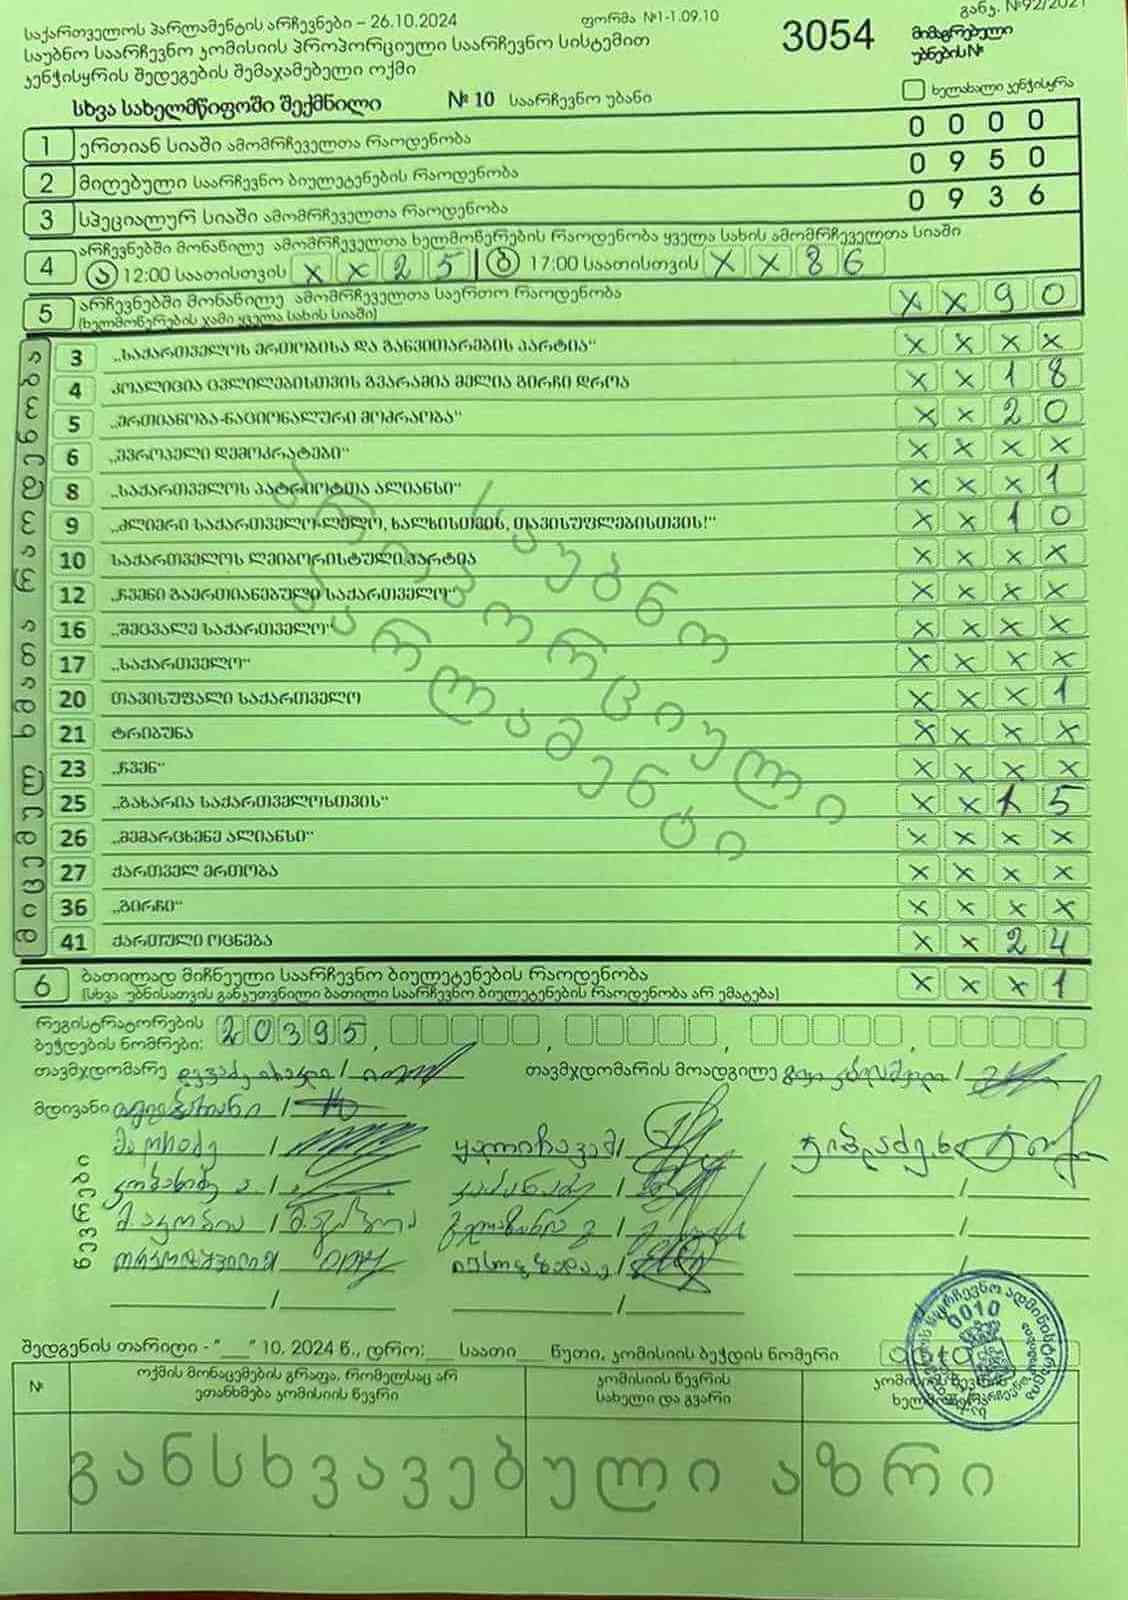 საქართველოს პარლამენტის არჩევნები – 26.10.2024
ფორმა №1-1.09.10
განკ. №92/2021
საუბნო საარჩევნო კომისიის პროპორციული საარჩევნო სისტემით
3054
მიმაგრებული
კენჭისყრის შედეგების შემაჯამებელი ოქმი
უბნების №
სხვა სახელმწიფოში შექმნილი № 10 საარჩევნო უბანი
ხელახალი კენჭისყრა
1 ერთიან სიაში ამომრჩეველთა რაოდენობა 0 0 0 0
2 მიღებული საარჩევნო ბიულეტენების რაოდენობა 0 9 5 0
3 სპეციალურ სიაში ამომრჩეველთა რაოდენობა 0 9 3 6
4 არჩევნებში მონაწილე ამომრჩეველთა ხელმოწერების რაოდენობა ყველა სახის ამომრჩეველთა სიაში
ა 12:00 საათისთვის x x 2 5 ბ 17:00 საათისთვის x x 8 6
5 არჩევნებში მონაწილე ამომრჩეველთა საერთო რაოდენობა x x 9 0
(ხელმოწერების ჯამი ყველა სახის სიაში)
მიცემულ ხმათა რაოდენობა
3 „საქართველოს ერთობისა და განვითარების პარტია“ x x x x
4 კოალიცია ცვლილებისთვის გვარამია მელია გირჩი დროა x x 1 8
5 „ერთიანობა-ნაციონალური მოძრაობა“ x x 2 0
6 „ევროპელი დემოკრატები“ x x x x
8 „საქართველოს პატრიოტთა ალიანსი“ x x x 1
9 „ძლიერი საქართველო-ლელო, ხალხისთვის, თავისუფლებისთვის!“ x x 1 0
10 საქართველოს ლეიბორისტული პარტია x x x x
12 „ჩვენი გაერთიანებული საქართველო“ x x x x
16 „შეცვალე საქართველო“ x x x x
17 „საქართველო“ x x x x
20 თავისუფალი საქართველო x x x 1
21 ტრიბუნა x x x x
23 „ჩვენ“ x x x x
25 „გახარია საქართველოსთვის“ x x 1 5
26 „მემარცხენე ალიანსი“ x x x x
27 ქართველ ერთობა x x x x
36 „გირჩი“ x x x x
41 ქართული ოცნება x x 2 4
საუბნო
პროპორციული
პარლამენტი
6 ბათილად მიჩნეული საარჩევნო ბიულეტენების რაოდენობა x x x 1
(სხვა უბნისათვის განკუთვნილი ბათილი საარჩევნო ბიულეტენების რაოდენობა არ ემატება)
რეგისტრატორების
ბეჭდების ნომრები: 2 0 3 9 5 , , , ,
თავმჯდომარე /
თავმჯდომარის მოადგილე /
მდივანი /
წევრები
შედგენის თარიღი - "___" 10. 2024 წ., დრო:___ საათი ___ წუთი, კომისიის ბეჭდის ნომერი
0010
№
ოქმის მონაცემების გრაფა, რომელსაც არ
ეთანხმება კომისიის წევრი
კომისიის წევრის
სახელი და გვარი
კომისიის წევრის
განსხვავებული აზრი